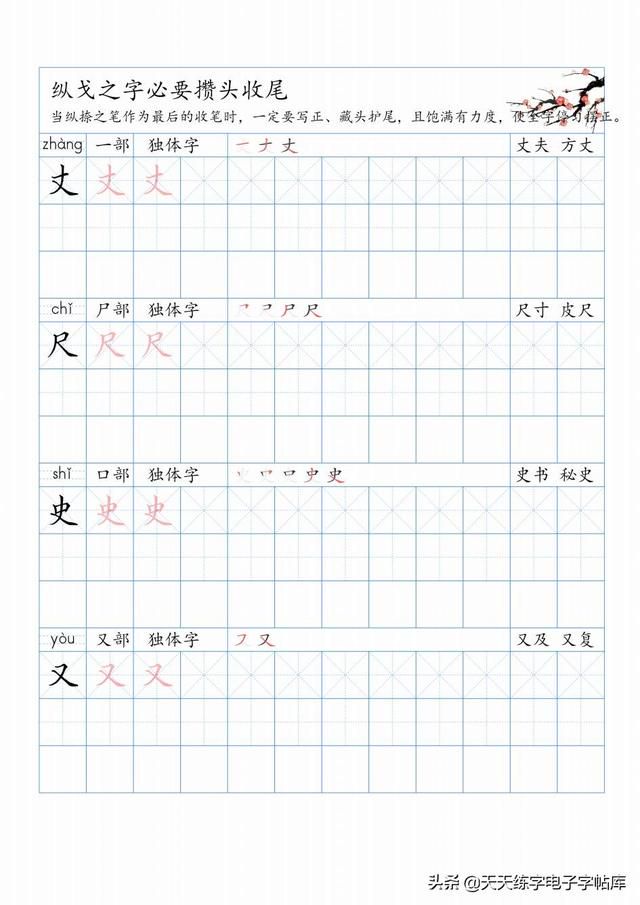 纵戈之字必要攒头收尾
当纵捺之笔作为最后的收笔时，一定要写正、藏头护尾，且饱满有力度，使全字停匀摆正。
zhàng 一部 独体字 一 ナ 丈 丈夫 方丈
丈 丈 丈
chǐ 尸部 独体字 𠃍 コ 尸 尺 尺寸 皮尺
尺 尺 尺
shǐ 口部 独体字 丨 口 口 史 史 史书 秘史
史 史 史
yòu 又部 独体字 フ 又 又及 又复
又 又 又
头条 @天天练字电子字帖库